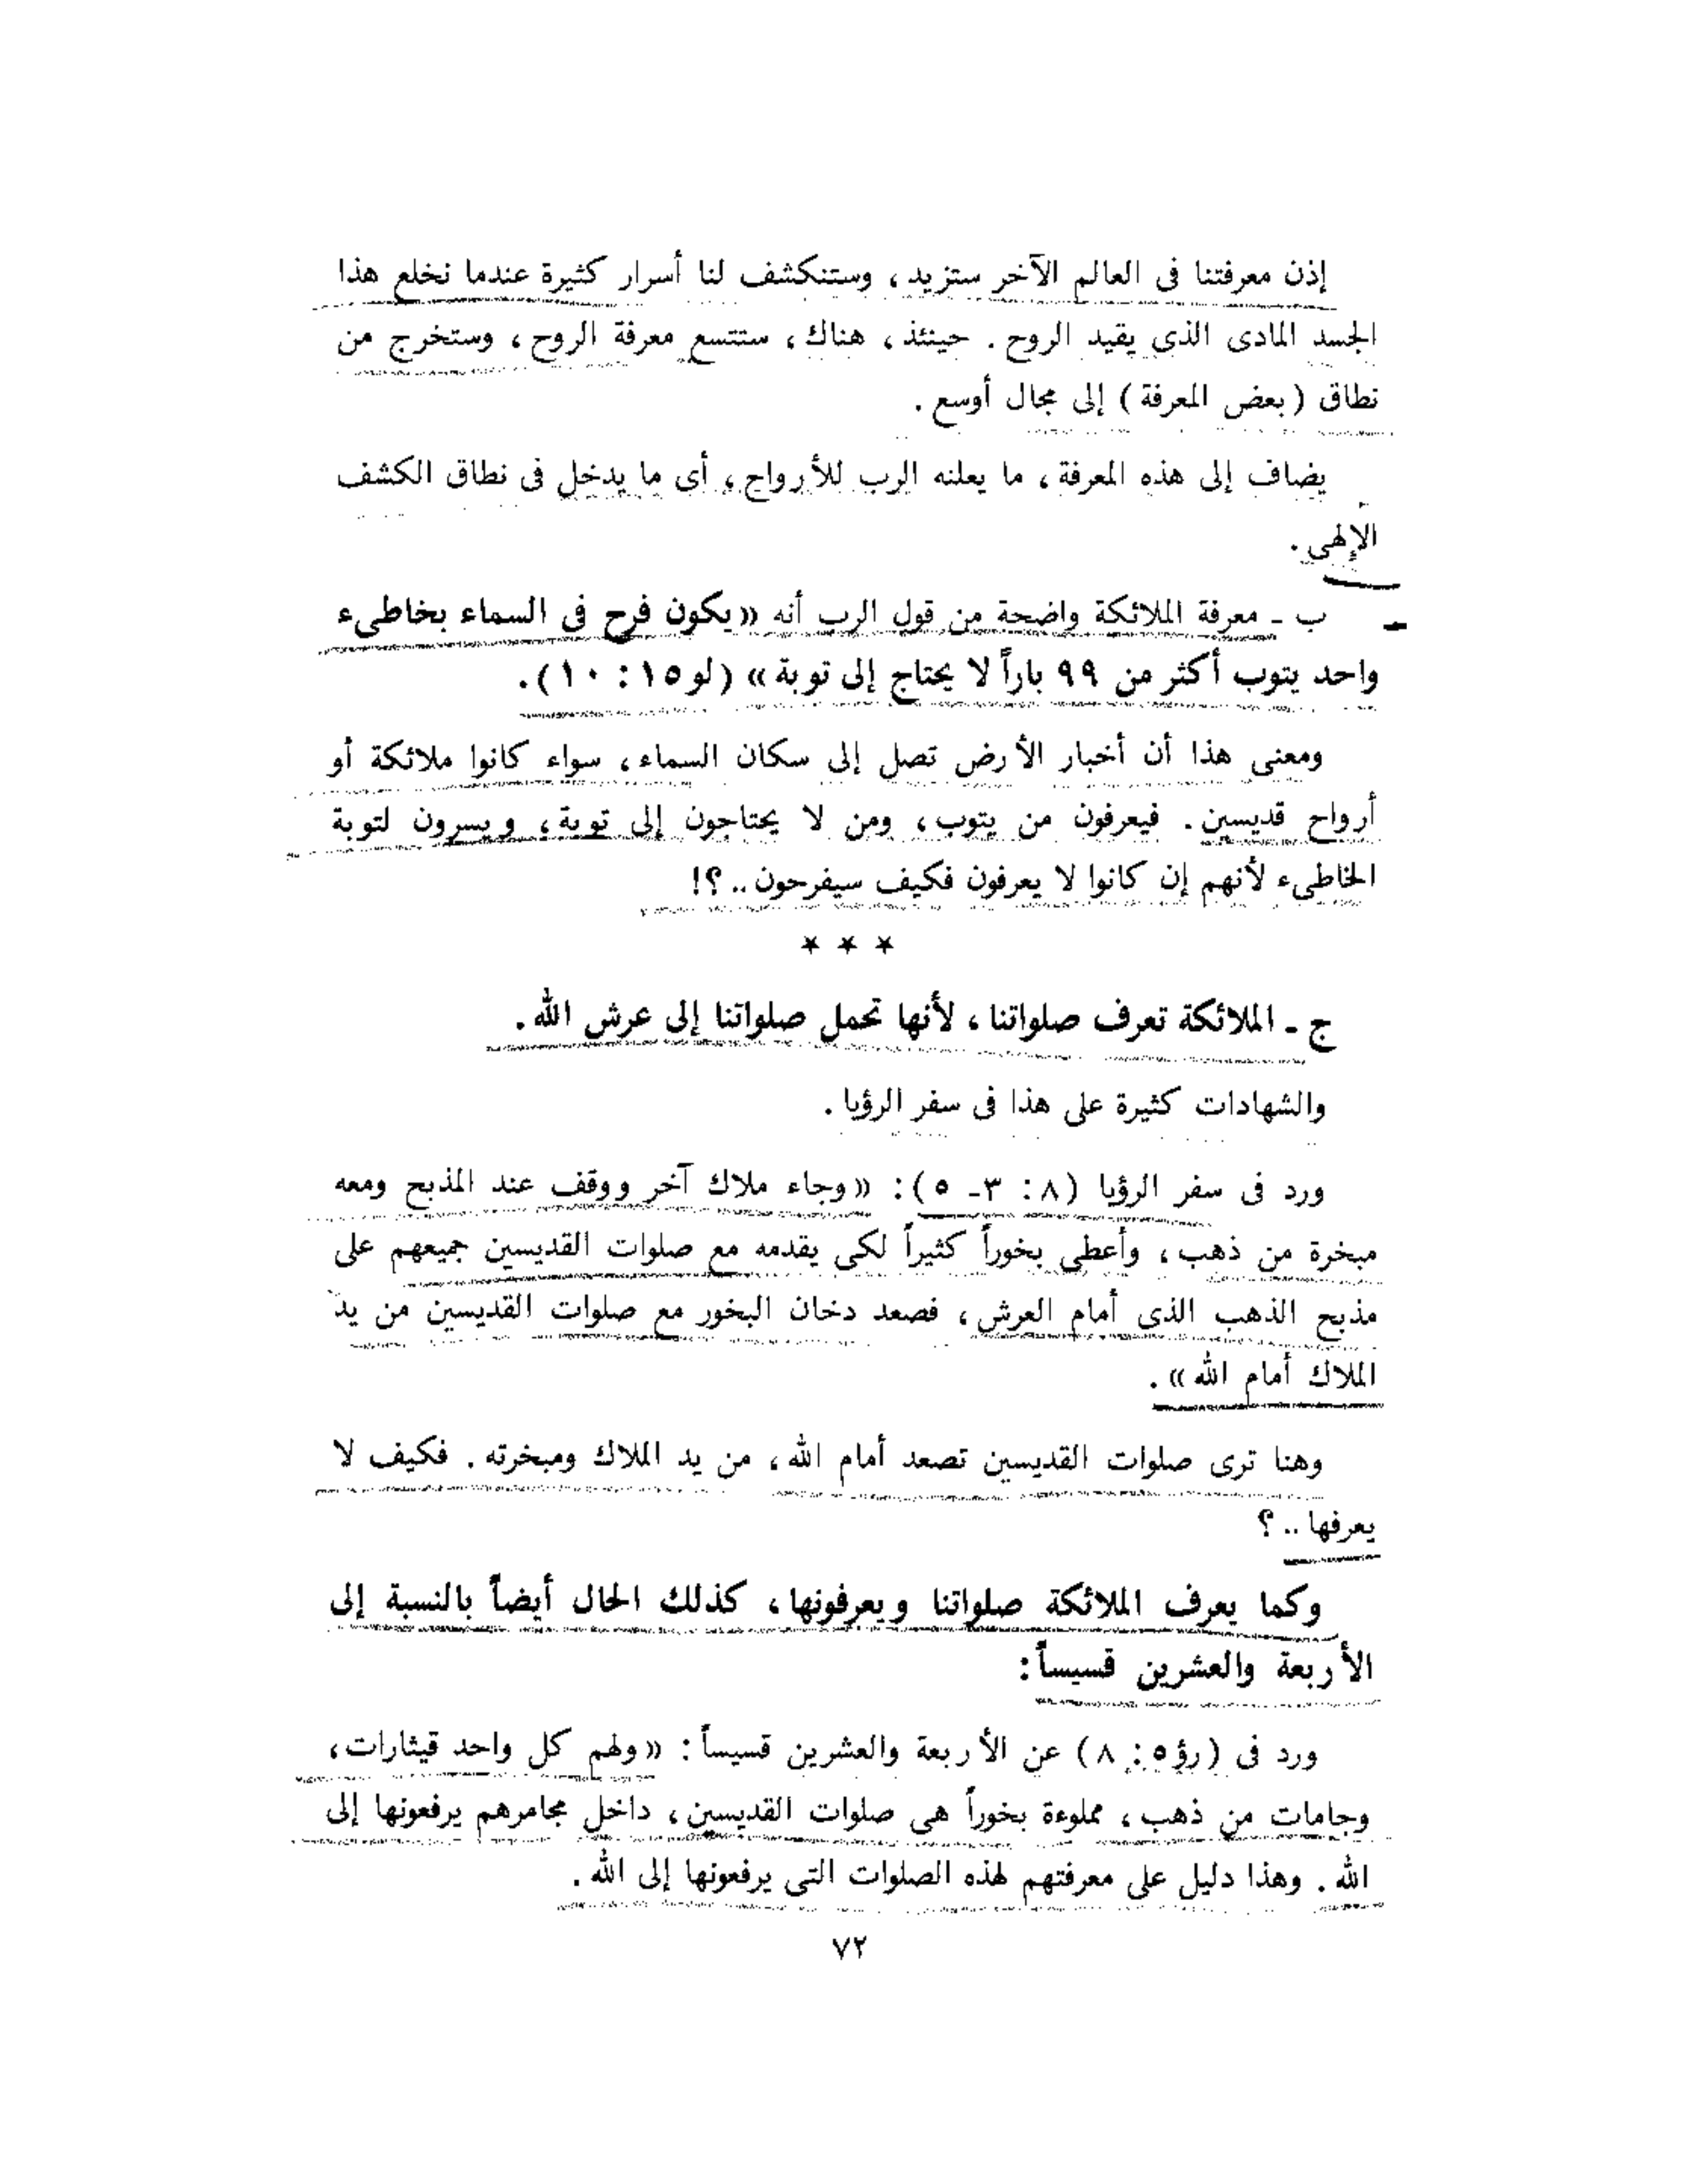 إذن معرفتنا فى العالم الآخر ستزيد ، وستنكشف لنا أسرار كثيرة عندما نخلع هذا
الجسد المادى الذى يقيد الروح . حينئذ ، هناك ، ستتسع معرفة الروح ، وستخرج من
نطاق ( بعض المعرفة ) إلى مجال أوسع .
يضاف إلى هذه المعرفة ، ما يعلنه الرب للأرواح ، أى ما يدخل فى نطاق الكشف
الإلهى .
ب ـ معرفة الملائكة واضحة من قول الرب أنه «يكون فرح فى السماء بخاطىء
واحد يتوب أكثر من ٩٩ باراً لا يحتاج إلى توبة» (لو١٥ : ١٠).
ومعنى هذا أن أخبار الأرض تصل إلى سكان السماء ، سواء كانوا ملائكة أو
أرواح قديسين . فيعرفون من يتوب ، ومن لا يحتاجون إلى توبة ، ويسرون لتوبة
الخاطىء لأنهم إن كانوا لا يعرفون فكيف سيفرحون .. ؟!
* * *
ج ـ الملائكة تعرف صلواتنا ، لأنها تحمل صلواتنا إلى عرش الله .
والشهادات كثيرة على هذا فى سفر الرؤيا .
ورد فى سفر الرؤيا (٨ : ٣ ـ ٥) : «وجاء ملاك آخر ووقف عند المذبح ومعه
مبخرة من ذهب ، وأعطى بخوراً كثيراً لكى يقدمه مع صلوات القديسين جميعهم على
مذبح الذهب الذى أمام العرش ، فصعد دخان البخور مع صلوات القديسين من يد
الملاك أمام الله» .
وهنا ترى صلوات القديسين تصعد أمام الله ، من يد الملاك ومبخرته . فكيف لا
يعرفها .. ؟
وكما يعرف الملائكة صلواتنا ويعرفونها ، كذلك الحال أيضاً بالنسبة إلى
الأربعة والعشرين قسيساً :
ورد فى (رؤ٥ : ٨) عن الأربعة والعشرين قسيساً : «ولهم كل واحد قيثارات ،
وجامات من ذهب ، مملوءة بخوراً هى صلوات القديسين ، داخل مجامرهم يرفعونها إلى
الله . وهذا دليل على معرفتهم لهذه الصلوات التى يرفعونها إلى الله .
٧٢